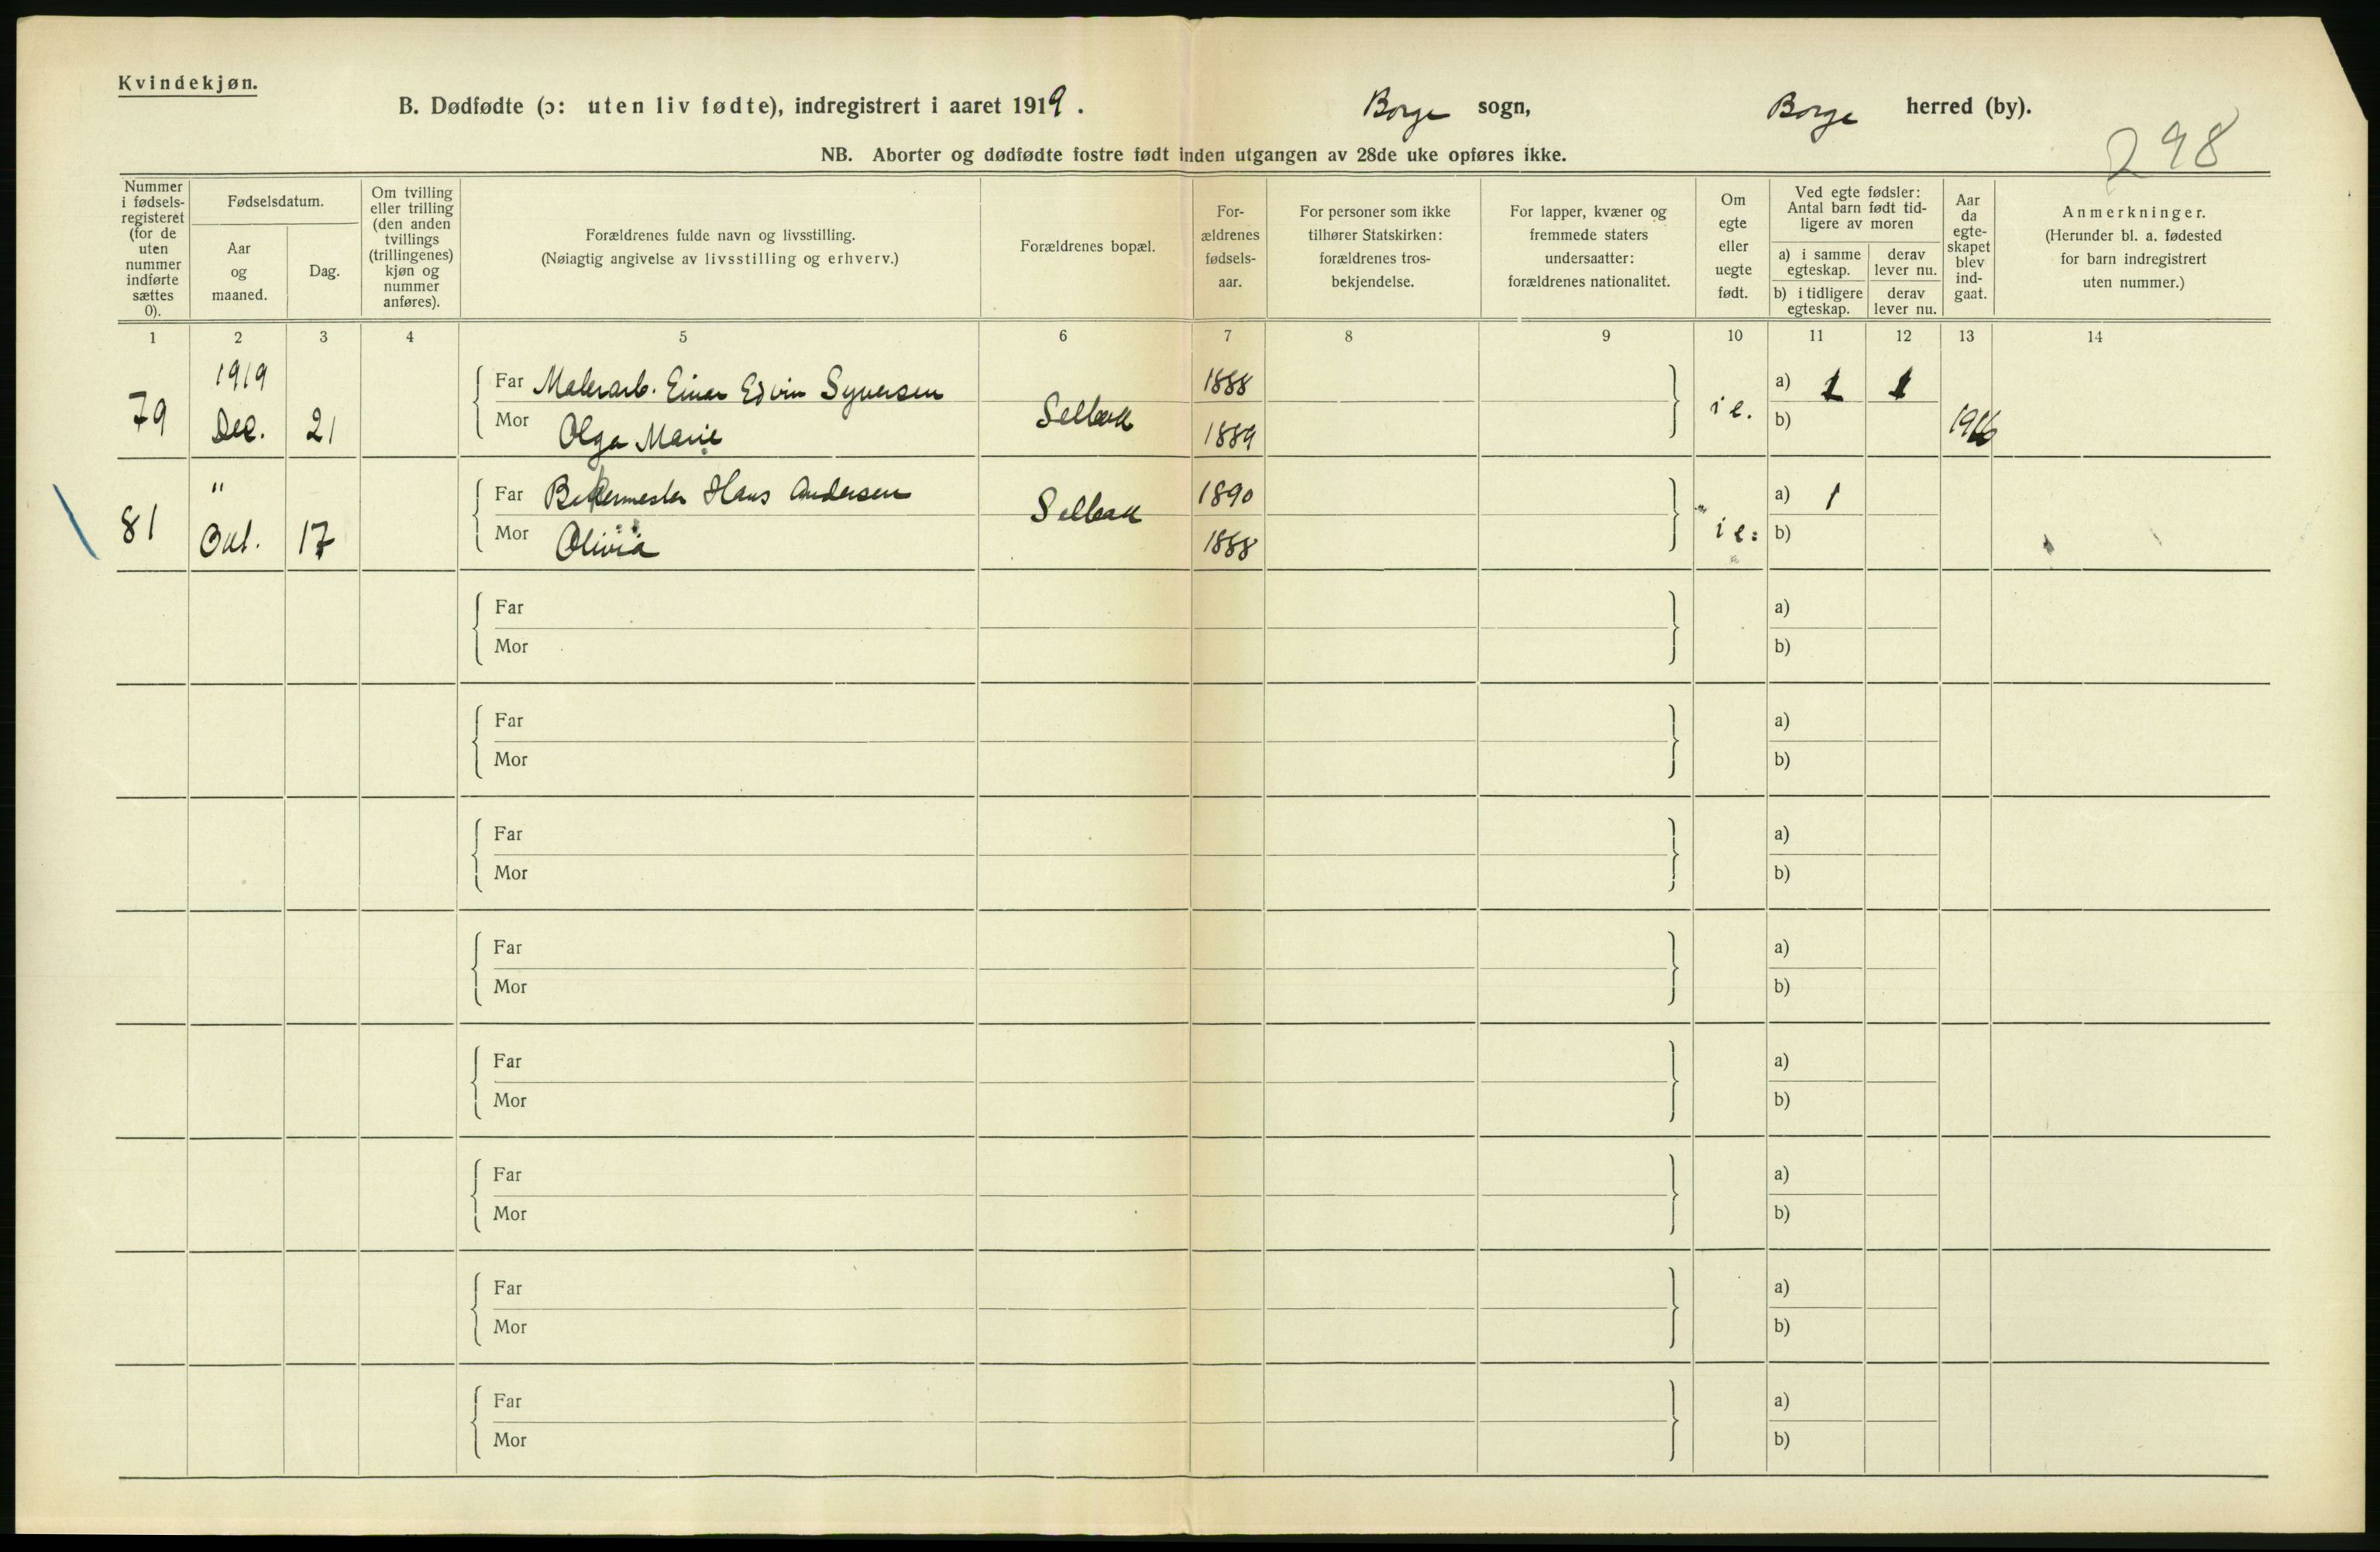 Kvindekjøn.
B. Dødfødte (ɔ: uten liv fødte), indregistrert i aaret 1919.
Borge sogn,
Borge herred (by).
298
NB. Aborter og dødfødte fostre født inden utgangen av 28de uke opføres ikke.
Nummer i fødsels-registeret (for de uten nummer indførte sættes 0).
Fødselsdatum.
Aar og maaned.
Dag.
Om tvilling eller trilling (den anden tvillings (trillingenes) kjøn og nummer anføres).
Forældrenes fulde navn og livsstilling.
(Nøiagtig angivelse av livsstilling og erhverv.)
Forældrenes bopæl.
For-ældrenes fødsels-aar.
For personer som ikke tilhører Statskirken: forældrenes tros-bekjendelse.
For lapper, kvæner og fremmede staters undersaatter: forældrenes nationalitet.
Om egte eller uegte født.
Ved egte fødsler: Antal barn født tid-ligere av moren
a) i samme egteskap.
derav lever nu.
b) i tidligere egteskap.
derav lever nu.
Aar da egte-skapet blev ind-gaat.
Anmerkninger.
(Herunder bl. a. fødested for barn indregistrert uten nummer.)
1 2 3 4 5 6 7 8 9 10 11 12 13 14
79 1919 Dec. 21
Far Malerarb. Einar Edvin Syversen
Mor Olga Marie
Selbak
1888
1889
i e.
a) 1 1
b)
1916
81 " Okt. 17
Far Bakermester Hans Andersen
Mor Olivia
Selbak
1890
1888
i e:
a) 1
b)
Far a)
Mor b)
Far a)
Mor b)
Far a)
Mor b)
Far a)
Mor b)
Far a)
Mor b)
Far a)
Mor b)
Far a)
Mor b)
Far a)
Mor b)